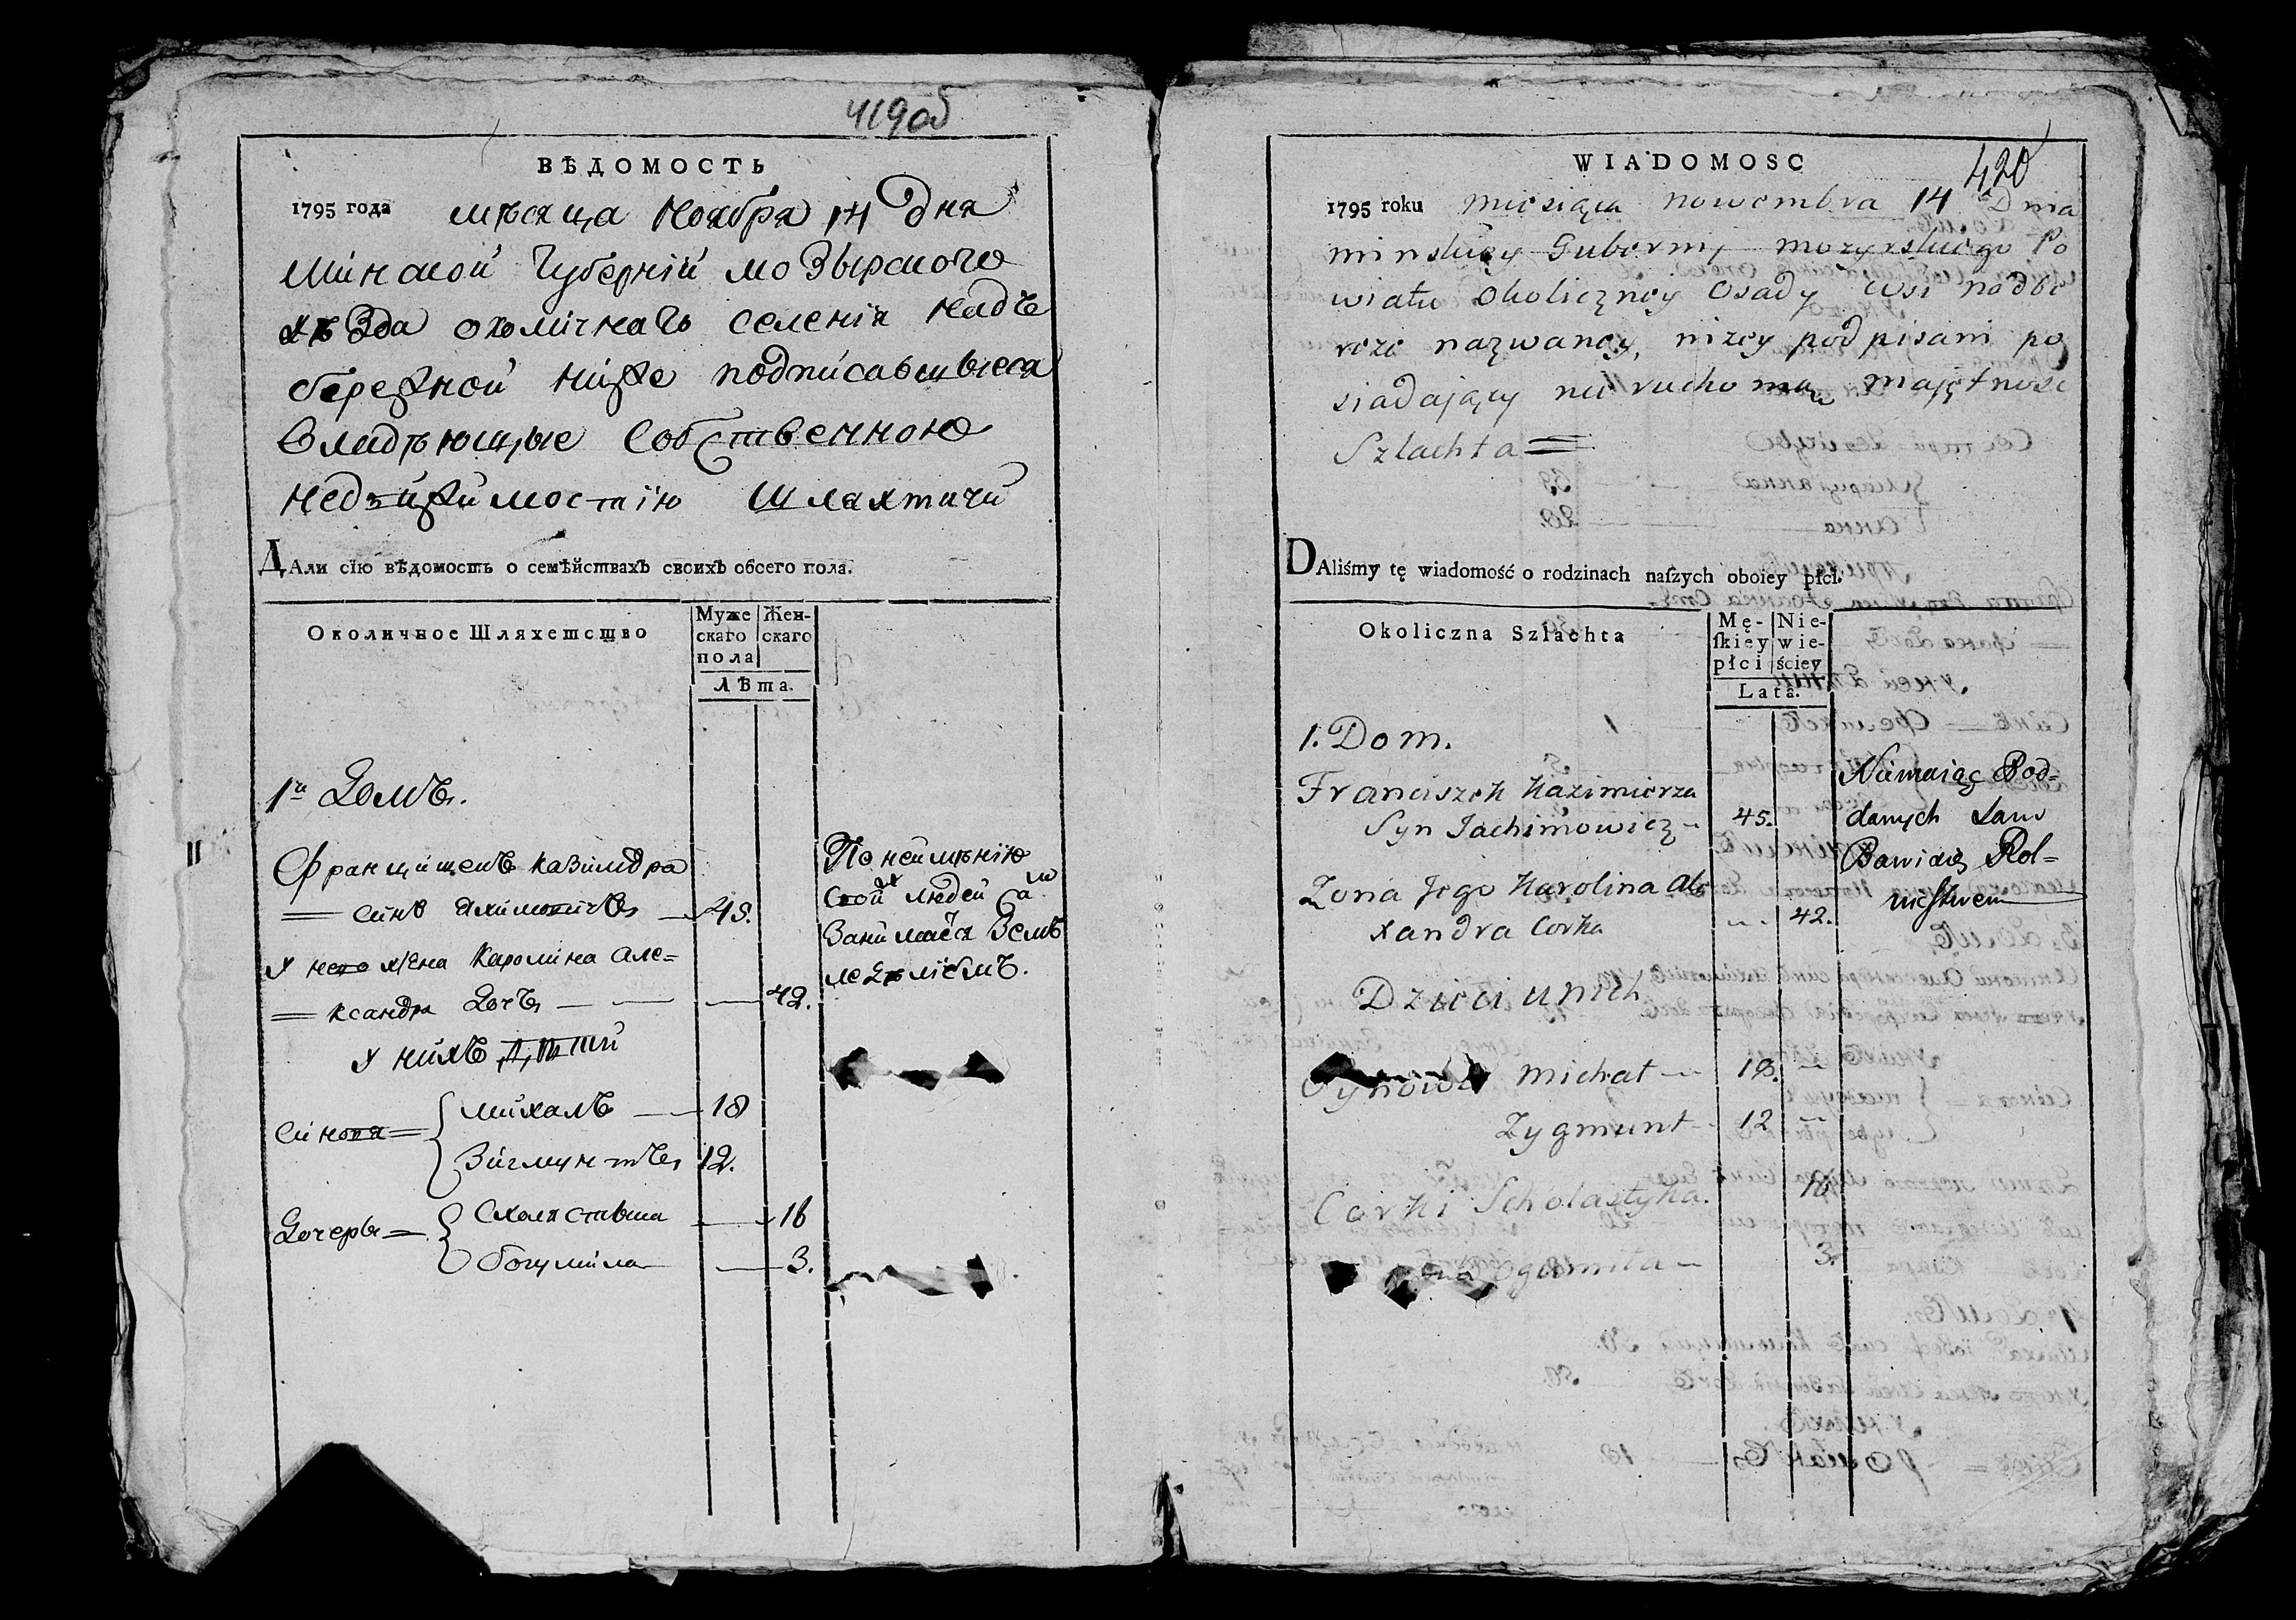 419 об
ВѢДОМОСТЬ
1795 года мѣсяца Ноября 14 Дня
Минской Губерній мозырского
уѣзда околичнаго селенія Надъ
бережной ниже подписавшыеся
владѣющые Собственною
недвижимостію Шляхтичи
ДАли сїю вѣдомость о семѣйствахъ своихъ обоего пола.
Околичное Шляхетство
Муже
скаго
пола
Жен-
скаго
Лѣта.
1й Домъ.
Францишекъ казимира
— синъ Яхимовичъ — 45.
По неимѣнію
своих людей сам
Занимаеся Земъ
леделіемъ.
У него жена Каролина Але=
= ксандра Дочъ — — — 42.
У нихъ дѣтей
Синовя = { михалъ — 18
Зигмунтъ 12.
Дочеры = { Схоластыка — 16
богумила — 3.
420
WIADOMOSC
1795 roku miesiąca nowembra 14 Dnia
minskiey Guberny mozyrskiego Po
wiatu Okoliczney Osady wsi nadbe
reże nazwaney, niżey podpisani po
siadający nieruchomą majętnosc
Szlachta =
DAliśmy tę wiadomość o rodzinach naſzych oboiey płci.
Okoliczna Szlachta
Mę-
ſkiey
płci
Nie-
wie-
ściey
Lata.
1. Dom.
Franciszek Kazimierza
Syn Jachimowicz – 45.
Niemaiąc Pod=
danych sam
Bawi się Rol=
nictwem
Zona Jego Karolina Ale
xandra Corka 42.
Dzieci u nich
Synowie Michał — 18. —
Zygmunt – 12 —
Corki Scholastyka. 16
Bogumiła – 3.